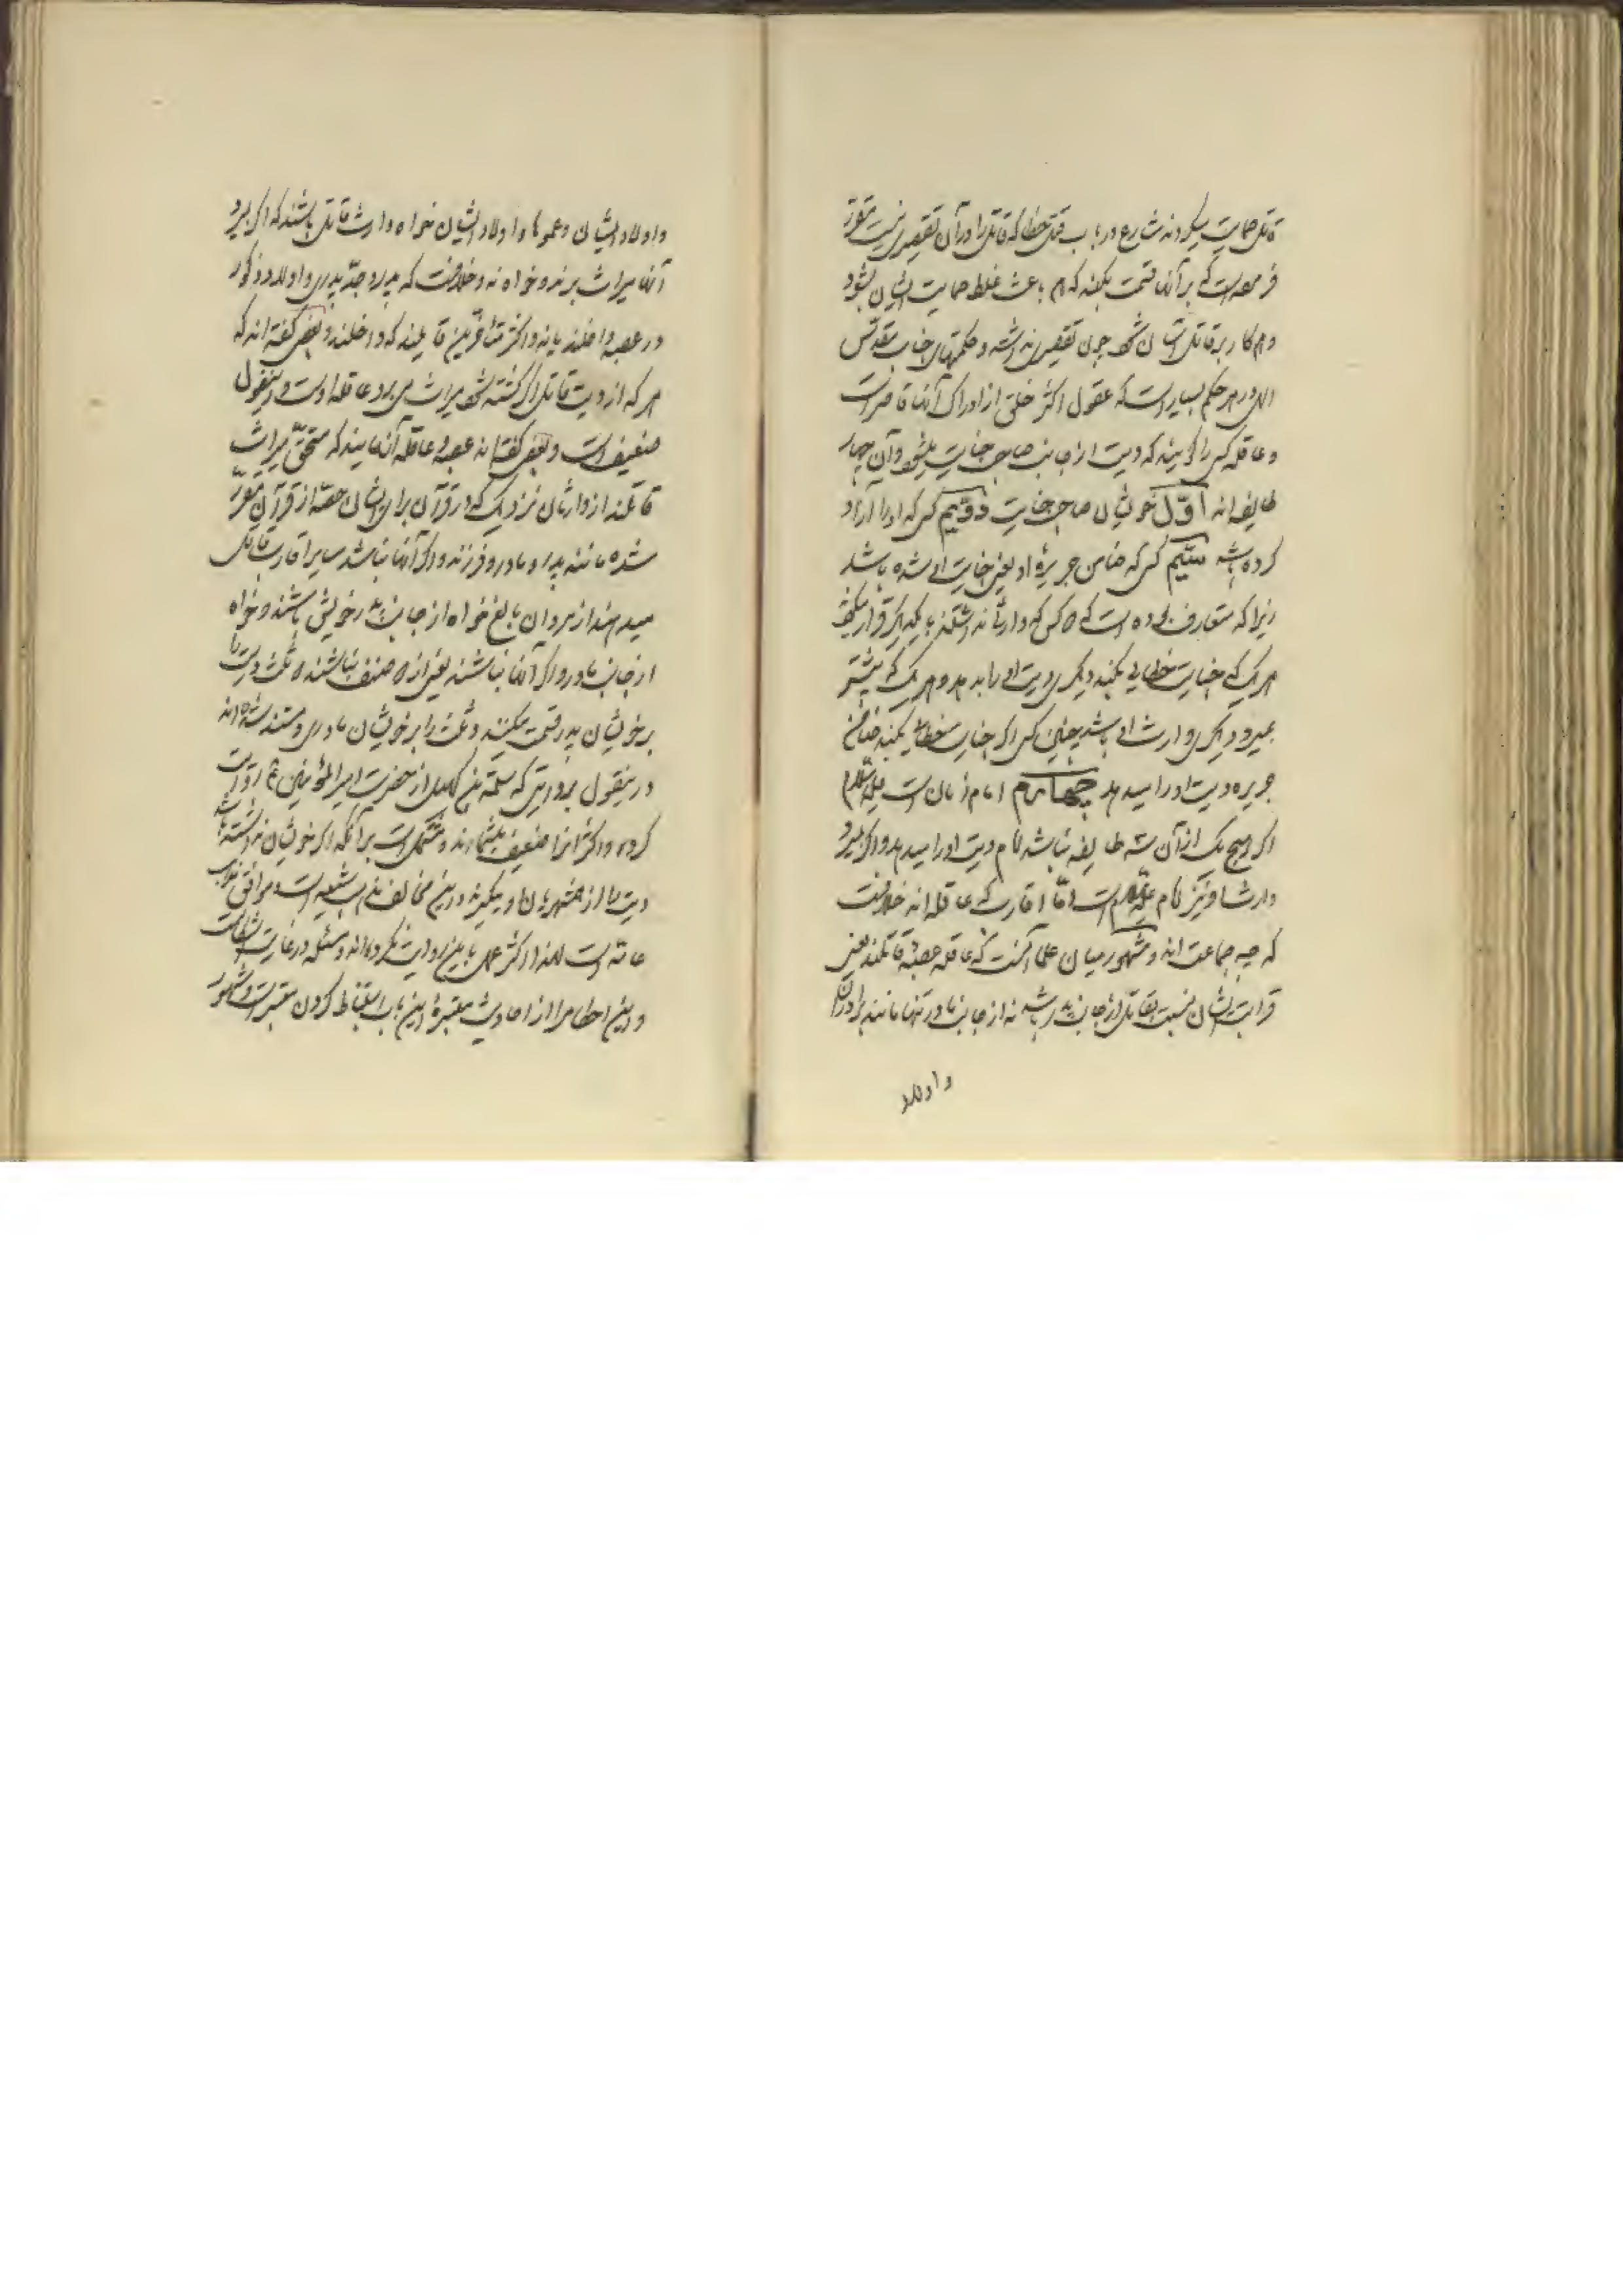 قاتل حمایت میکردند شارع در باب قتل خطا که قاتل را در آن تقصیری نیست مقرر
فرموده است که بر آنها قسمت بکنند که هم باعث غلط حمایت ایشان بشود
و هم کار بر قاتل آسان شود چون تقصیری نداشته و حکمتهای جناب مقدس
الهی در هر حکم بسیار است که عقول اکثر خلق از ادراک آنها قاصر است
و عاقله کسی را گویند که دیت از جانب صاحب جنایت میدهد و آن چهار
طایفه اند اول خویشان صاحب جنایت دویم کسی که او را آزاد
کرده باشد سیم کسی که ضامن جریرهٔ او یعنی جنایت او شده باشد
زیرا که متعارف بوده است که دو کس که وارثی نداشتند با یکدیگر قرار میکردند
هر یک که جنایت خطایی بکند دیگری دیت او را بدهد و هر یک که پیشتر
بمیرد دیگری وارث او باشد چنین کسی اگر جنایت خطا بکند ضامن
جریره دیت او را میدهد چهارم امام زمان است علیه السلام
اگر هیچ یک از آن سه طایفه نباشد امام دیت او را میدهد و اگر بمیرد
وارث او نیز امام علیه السلام است و اما اقارب که عاقله اند خلافست
که چه جماعت اند و مشهور میان علما آنست که عاقله عصبهٔ قاتلند یعنی
قرابت ایشان نسبت بقاتل از جانب پدر باشد نه از جانب مادر تنها مانند برادران
و اولاد
و اولاد ایشان و عموها و اولاد ایشان خواه وارث قاتل باشند که اگر بمیرد
آنها میراث برند و خواه نه و خلافست که پدر و جد پدری و اولاد ذکور
در عصبه داخلند یا نه و اکثر متأخرین قایلند که داخلند و بعضی گفته اند که
هر که از دیت قاتل اگر کشته شود میراث می برد عاقله اوست و این قول
ضعیف است و بعضی گفته اند عصبه و عاقله آنهایند که مستحق میراث
قاتلند از وارثان نزدیک که در قرآن برای ایشان حصه از قرآن مقرر
شده مانند پدر و مادر و فرزند و اگر آنها نباشند سایر اقارب قاتل
میدهند از مردان بالغ خواه از جانب پدر خویش باشند و خواه
از جانب مادر و اگر آنها نباشند یعنی از صنف نباشند دو ثلث دیت را
بر خویشان پدر قسمت میکنند و ثلث را بر خویشان مادری و مستند شده اند
در این قول بروایتی که سلمة بن کهیل از حضرت امیر المؤمنین ع روایت
کرده و اکثر آنرا ضعیف میشمارند و مشتمل است بر آنکه اگر خویشان نداشته باشد
دیت را از همشهریان او میگیرند و این مخالف مذهب شیعه است و موافق مذهب
عامه است لهذا اکثر عمل باین روایت نکرده اند و مسئله در غایت اشکالست
و این احکام را از احادیث معتبرهٔ این باب استنباط کردن متعسر است و مشهور